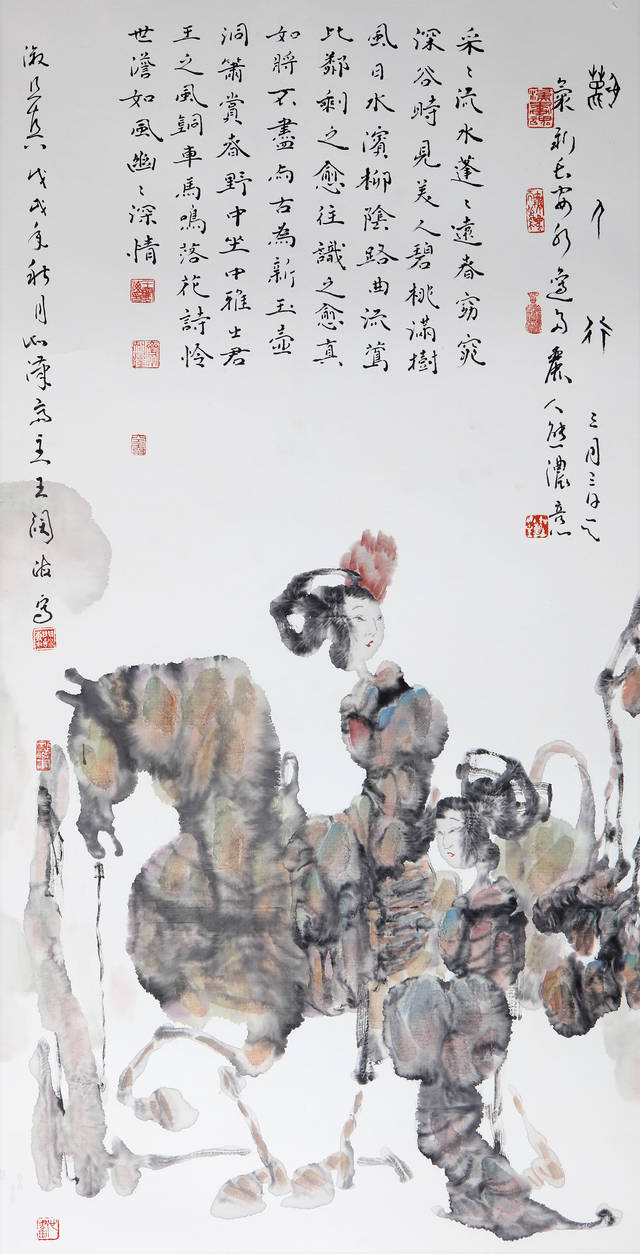 麗人行
三月三日天
氣新長安水邊多麗人態濃意
采〻流水蓬〻遠春窈窕
深谷時見美人碧桃滿樹
風日水濱柳陰路曲流鶯
比鄰剩之愈往識之愈真
如將不盡与古為新玉壺
洞簫賞春野中坐中雅士君
王之風銅車馬鳴落花詩怜
世澹如風幽〻深情
淑且真戊戌年秋月主王闊海寫